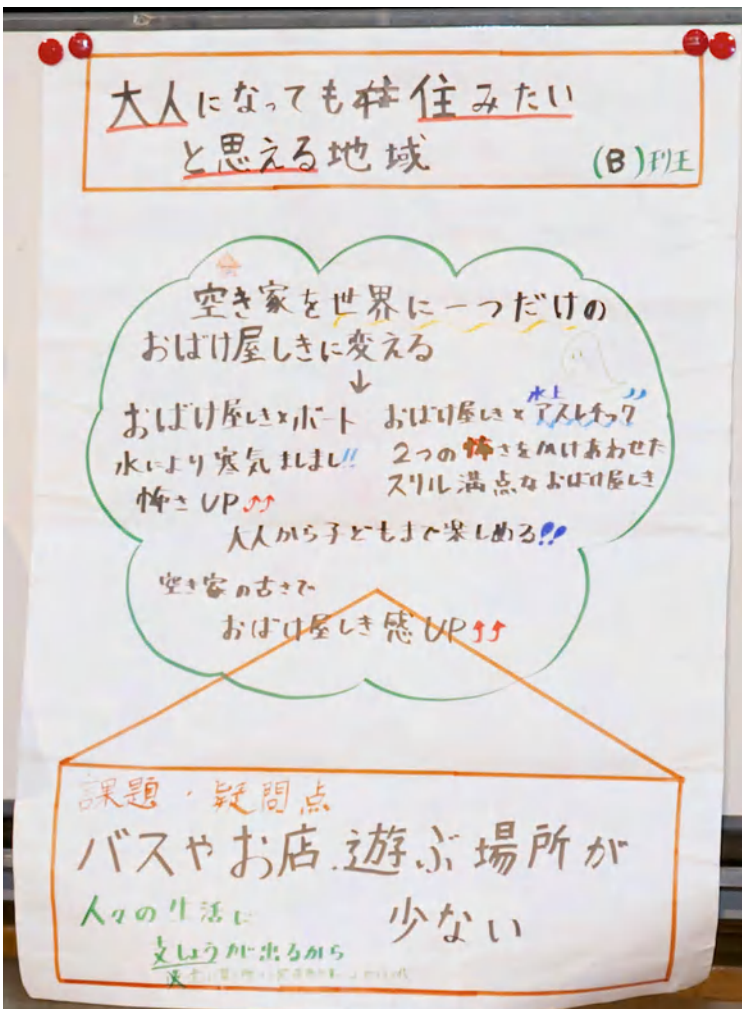 大人になっても住みたい
と思える地域
(B)班
空き家を世界に一つだけの
おばけ屋しきに変える
↓
おばけ屋しき×ボート
水により寒気ましまし!!
怖さUP↑↑
水上
おばけ屋しき×アスレチック
2つの怖さをかけあわせた
スリル満点なおばけ屋しき
大人から子どもまで楽しめる!!
空き家の古さで
おばけ屋しき感UP↑↑
課題・疑問点
バスやお店.遊ぶ場所が
少ない
人々の生活に
支しょうが出るから